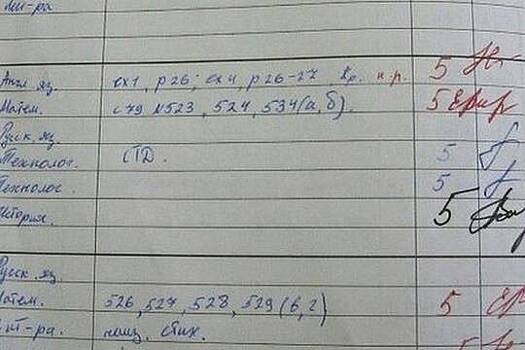 Лит-ра
Англ. яз. ex1, p 26; ex 4, p 26-27 к.р. 5
Матем. с 79 №523, 524, 534(а,б). 5
Русск. яз.
Технолог. СТД. 5
Технолог. 5
История. 5
Русск. яз.
Матем. 526, 527, 528, 529 (в, г) 5
Лит-ра. наиз. стих.